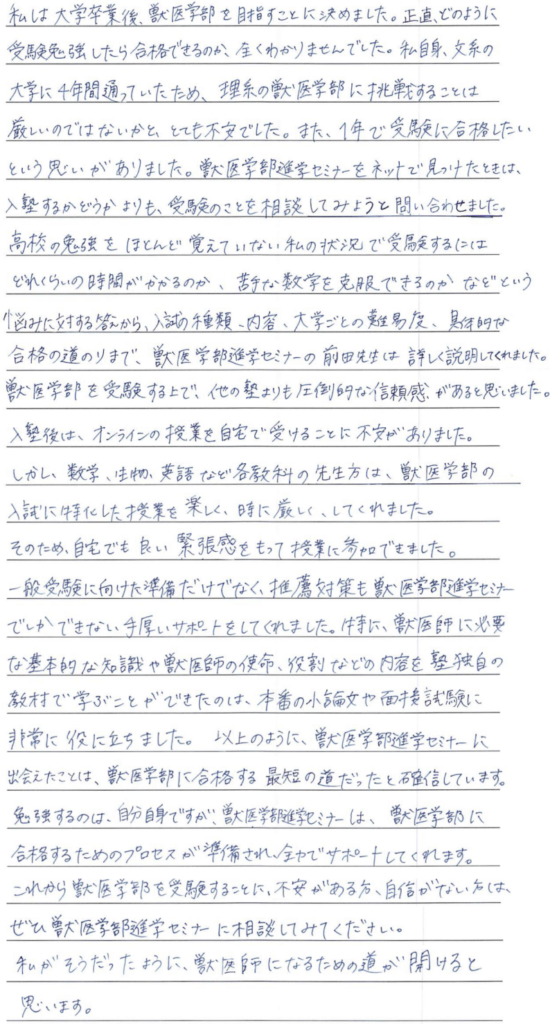 私は大学卒業後、獣医学部を目指すことに決めました。正直、どのように
受験勉強したら合格できるのか、全くわかりませんでした。私自身、文系の
大学に4年間通っていたため、理系の獣医学部に挑戦することは
厳しいのではないかと、とても不安でした。また、1年で受験に合格したい
という思いがありました。獣医学部進学セミナーをネットで見つけたときは、
入塾するかどうかよりも、受験のことを相談してみようと問い合わせました。
高校の勉強をほとんど覚えていない私の状況で受験するには
どれくらいの時間がかかるのか、苦手な数学を克服できるのかなどという
悩みに対する答えから、入試の種類、内容、大学ごとの難易度、具体的な
合格の道のりまで、獣医学部進学セミナーの前田先生は詳しく説明してくれました。
獣医学部を受験する上で、他の塾よりも圧倒的な信頼感があると思いました。
入塾後は、オンラインの授業を自宅で受けることに不安がありました。
しかし、数学、生物、英語など各教科の先生方は、獣医学部の
入試に特化した授業を楽しく、時に厳しく、してくれました。
そのため、自宅でも良い緊張感をもって授業に参加できました。
一般受験に向けた準備だけでなく、推薦対策も獣医学部進学セミナー
でしかできない手厚いサポートをしてくれました。特に、獣医師に必要
な基本的な知識や獣医師の使命、役割などの内容を塾独自の
教材で学ぶことができたのは、本番の小論文や面接試験に
非常に役に立ちました。 以上のように、獣医学部進学セミナーに
出会えたことは、獣医学部に合格する最短の道だったと確信しています。
勉強するのは、自分自身ですが、獣医学部進学セミナーは、獣医学部に
合格するためのプロセスが準備され、全力でサポートしてくれます。
これから獣医学部を受験することに、不安がある方、自信がない方は、
ぜひ獣医学部進学セミナーに相談してみてください。
私がそうだったように、獣医師になるための道が開けると
思います。